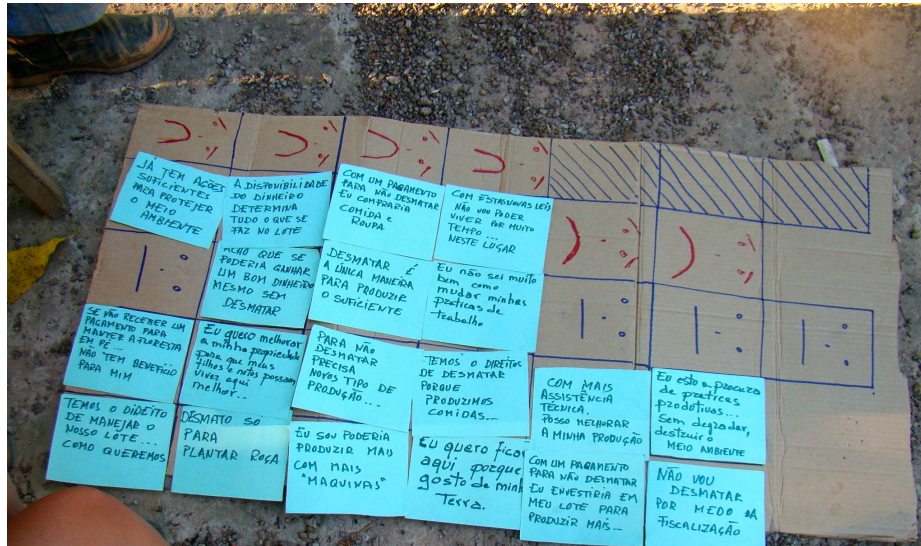 JÁ TEM AÇÕES
SUFICIENTES
PARA PROTEJER
O MEIO
AMBIENTE
A DISPONIBILIDADE
DO DINHEIRO
DETERMINA
TUDO O QUE SE
FAZ NO LOTE
COM UM PAGAMENTO
PARA NÃO DESMATAR
EU COMPRARIA
COMIDA E
ROUPA
COM ESTAS NOVAS LEIS
NÃO VOU PODER
VIVER POR MUITO
TEMPO...
NESTE LUGAR
ACHO QUE SE
PODERIA GANHAR
UM BOM DINHEIRO
MESMO SEM
DESMATAR
DESMATAR É
A UNICA MANEIRA
PARA PRODUZIR
O SUFICIENTE
Eu não sei muito
bem como
mudar minhas
praticas de
trabalho
SE NÃO RECEBER UM
PAGAMENTO PARA
MANTER A FLORESTA
EM PÉ...
NÃO TEM BENEFÍCIO
PARA MIM
Eu quero melhorar
a minha propriedade
para que meus
filhos e netos possam
viver aqui
melhor..
PARA NÃO
DESMATAR
PRECISA
NOVOS TIPO DE
PRODUÇÃO...
TEMOS O DIREITOS
DE DESMATAR
PORQUE
PRODUZIMOS
COMIDAS...
COM MAIS
ASSISTÊNCIA
TÉCNICA,
POSSO MELHORAR
A MINHA PRODUÇÃO
Eu esto a procura
de praticas
prodotivas...
Sem degradar,
destruir o
MEIO AMBIENTE
TEMOS O DIREITO
DE MANEJAR O
NOSSO LOTE...
COMO QUEREMOS
DESMATO SO
PARA
PLANTAR ROÇA
EU SOU PODERIA
PRODUZIR MAIS
COM MAIS
"MAQUINAS"
Eu quero ficar
aqui porque
gosto de minha
Terra.
COM UM PAGAMENTO
PARA NÃO DESMATAR
EU ENVESTIRIA EM
MEU LOTE PARA
PRODUZIR MAIS...
NÃO VOU
DESMATAR
POR MEDO DA
FISCALIZAÇÃO